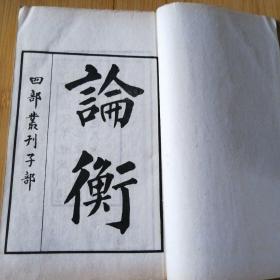 論衡
四部叢刊子部